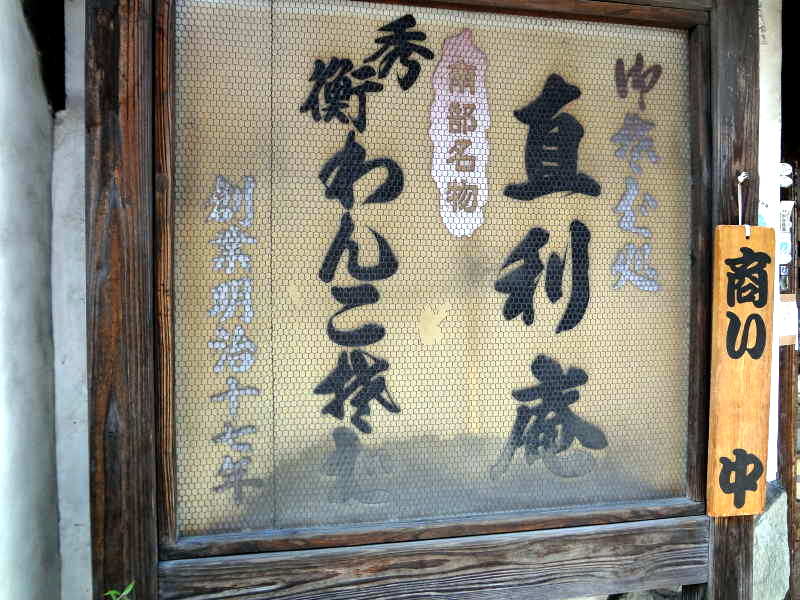 御蕎麦処
直利庵
南部名物
秀衡わんこ蕎麦
創業明治十七年
商い中